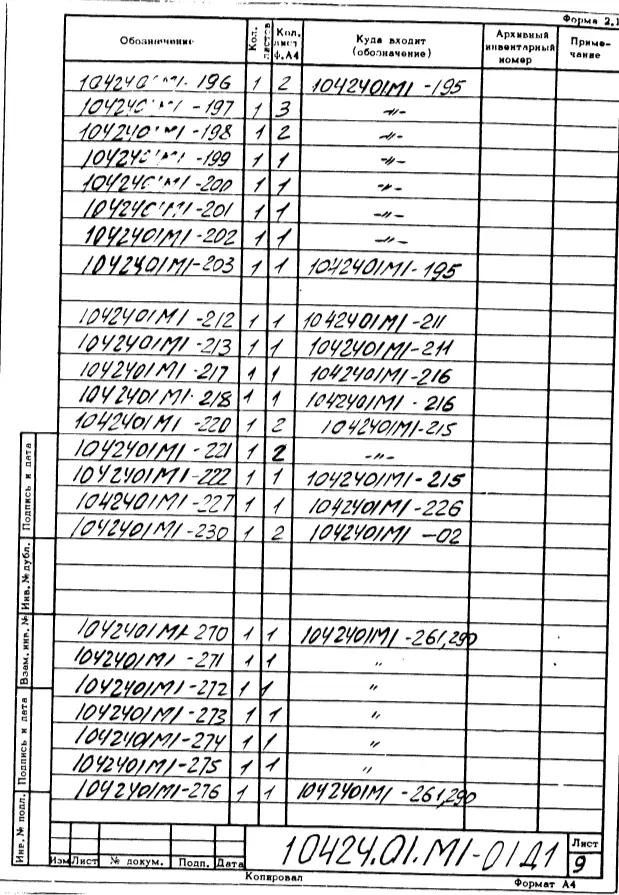 Форма 2.1
Обозначение Кол. листов Кол. лист ф.А4 Куда входит (обозначение) Архивный инвентарный номер Примечание
1042401М1-196 1 2 1042401М1-195
1042401М1-197 1 3 -〃-
1042401М1-198 1 2 -〃-
1042401М1-199 1 1 -〃-
1042401М1-200 1 1 -〃-
1042401М1-201 1 1 -〃-
1042401М1-202 1 1 -〃-
1042401М1-203 1 1 1042401М1-195
1042401М1-212 1 1 1042401М1-211
1042401М1-213 1 1 1042401М1-211
1042401М1-217 1 1 1042401М1-216
1042401М1-218 1 1 1042401М1-216
1042401М1-220 1 2 1042401М1-215
1042401М1-221 1 2 -〃-
1042401М1-222 1 1 1042401М1-215
1042401М1-227 1 1 1042401М1-226
1042401М1-230 1 2 1042401М1-02
1042401М1-270 1 1 1042401М1-261,290
1042401М1-271 1 1 〃
1042401М1-272 1 1 〃
1042401М1-273 1 1 〃
1042401М1-274 1 1 〃
1042401М1-275 1 1 〃
1042401М1-276 1 1 1042401М1-261,290
Инв. № подл. Подпись и дата Взам. инв. № Инв. № дубл. Подпись и дата
Изм Лист № докум. Подп. Дата
10424.01.М1-01Д1
Лист
9
Копировал Формат А4